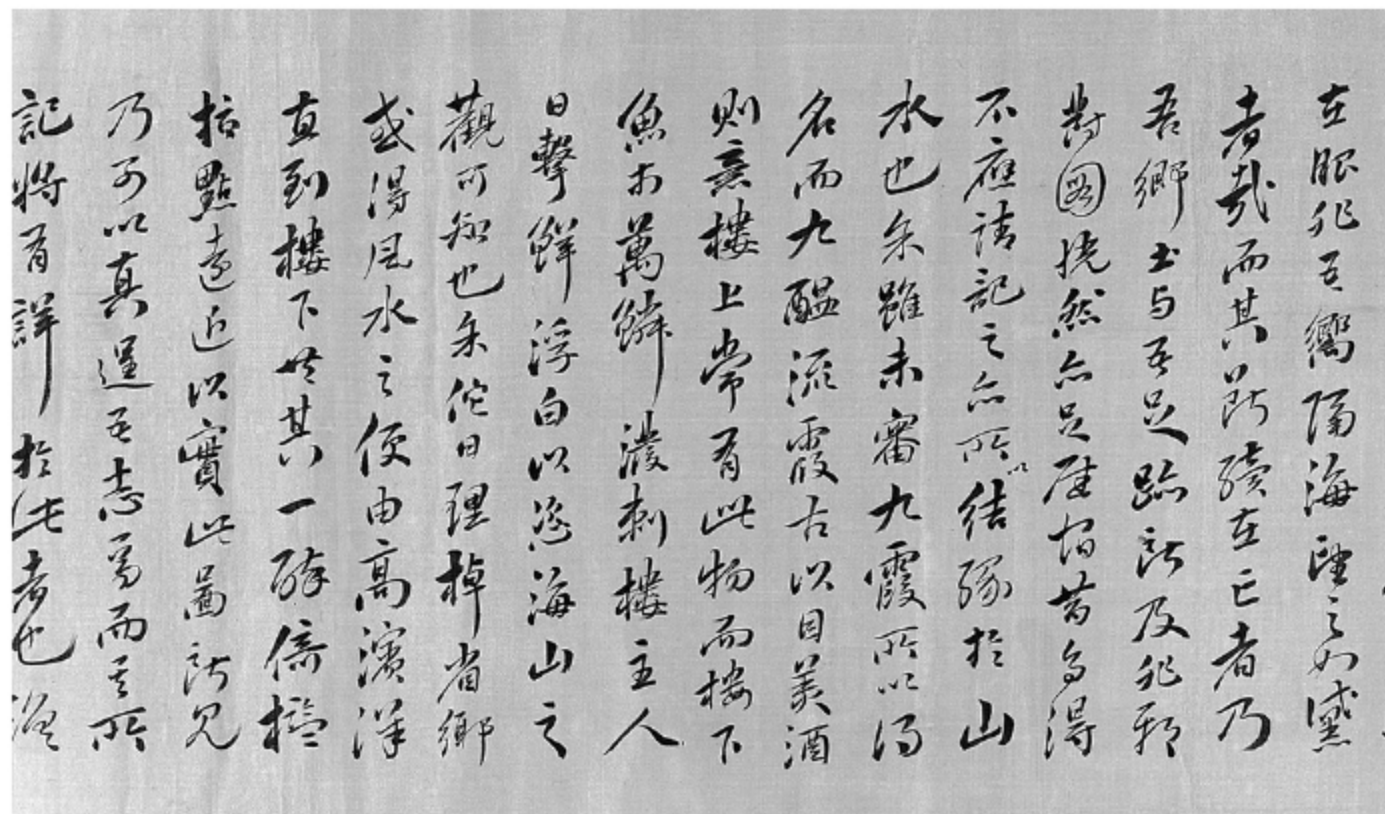 在眼非吾鄉隔海望之如黛
者哉而其所號在亡者乃
吾鄉土与吾足跡所及非耶
對圖恍然亦足慰宿昔自得
不應請記之亦所以結緣於山
水也余雖未審九霞所以得
名而九醞流霞古以目美酒
則意樓上常有此物而樓下
魚市萬鱗潑刺樓主人
日擊鮮浮白以恣海山之
觀可知也余佗日理棹省鄉
或得風水之便由高濱洋
直到樓下共其一醉倚檻
指點遠近以實此圖所見
乃可以真逞吾志焉而其所
記將有詳於此者也